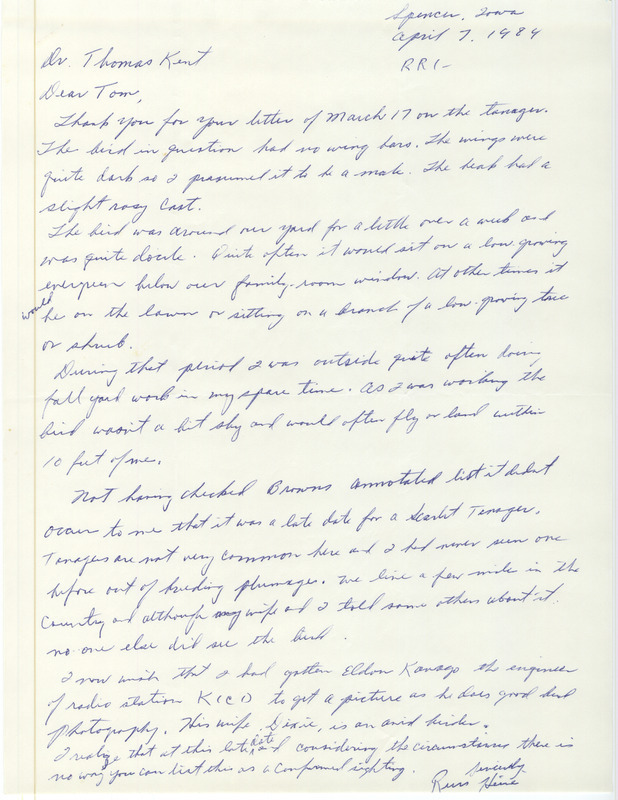 Spencer, Iowa
April 7, 1989
RR1-
Dr. Thomas Kent
Dear Tom,
Thank you for your letter of March 17 on the tanager.
The bird in question had no wing bars. The wings were
quite dark so I presumed it to be a male. The beak had a
slight rosy cast.
The bird was around our yard for a little over a week and
was quite docile. Quite often it would sit on a low growing
evergreen below our family-room window. At other times it
would be on the lawn or sitting on a branch of a low-growing tree
or shrub.
During that period I was outside quite often doing
fall yard work in my spare time. As I was working the
bird wasn't a bit shy and would often fly or land within
10 feet of me.
Not having checked Browns annotated list it didn't
occur to me that it was a late date for a Scarlet Tanager.
Tanagers are not very common here and I had never seen one
before out of breeding plumage. We live a few miles in the
country and although my wife and I told some others about it
no one else did see the bird.
I now wish that I had gotten Eldon Kanago the engineer
of radio station KICD to get a picture as he does good bird
photography. His wife, Dixie, is an avid birder.
I realize that at this late date and considering the circumstances there is
no way you can list this as a confirmed sighting.
Sincerely
Russ